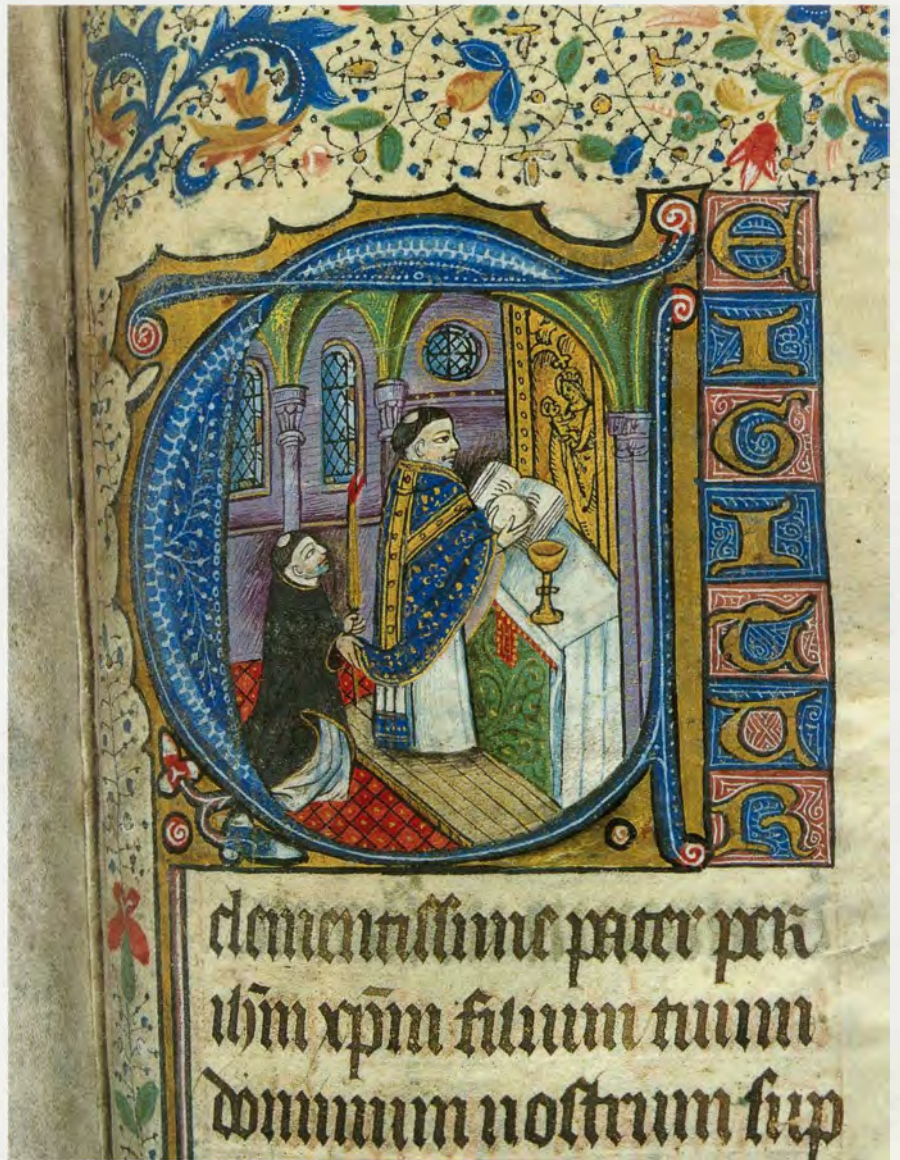 TEIGITUR
clementissime pater per
ih̄m xp̄m filium tuum
dominum nostrum sup